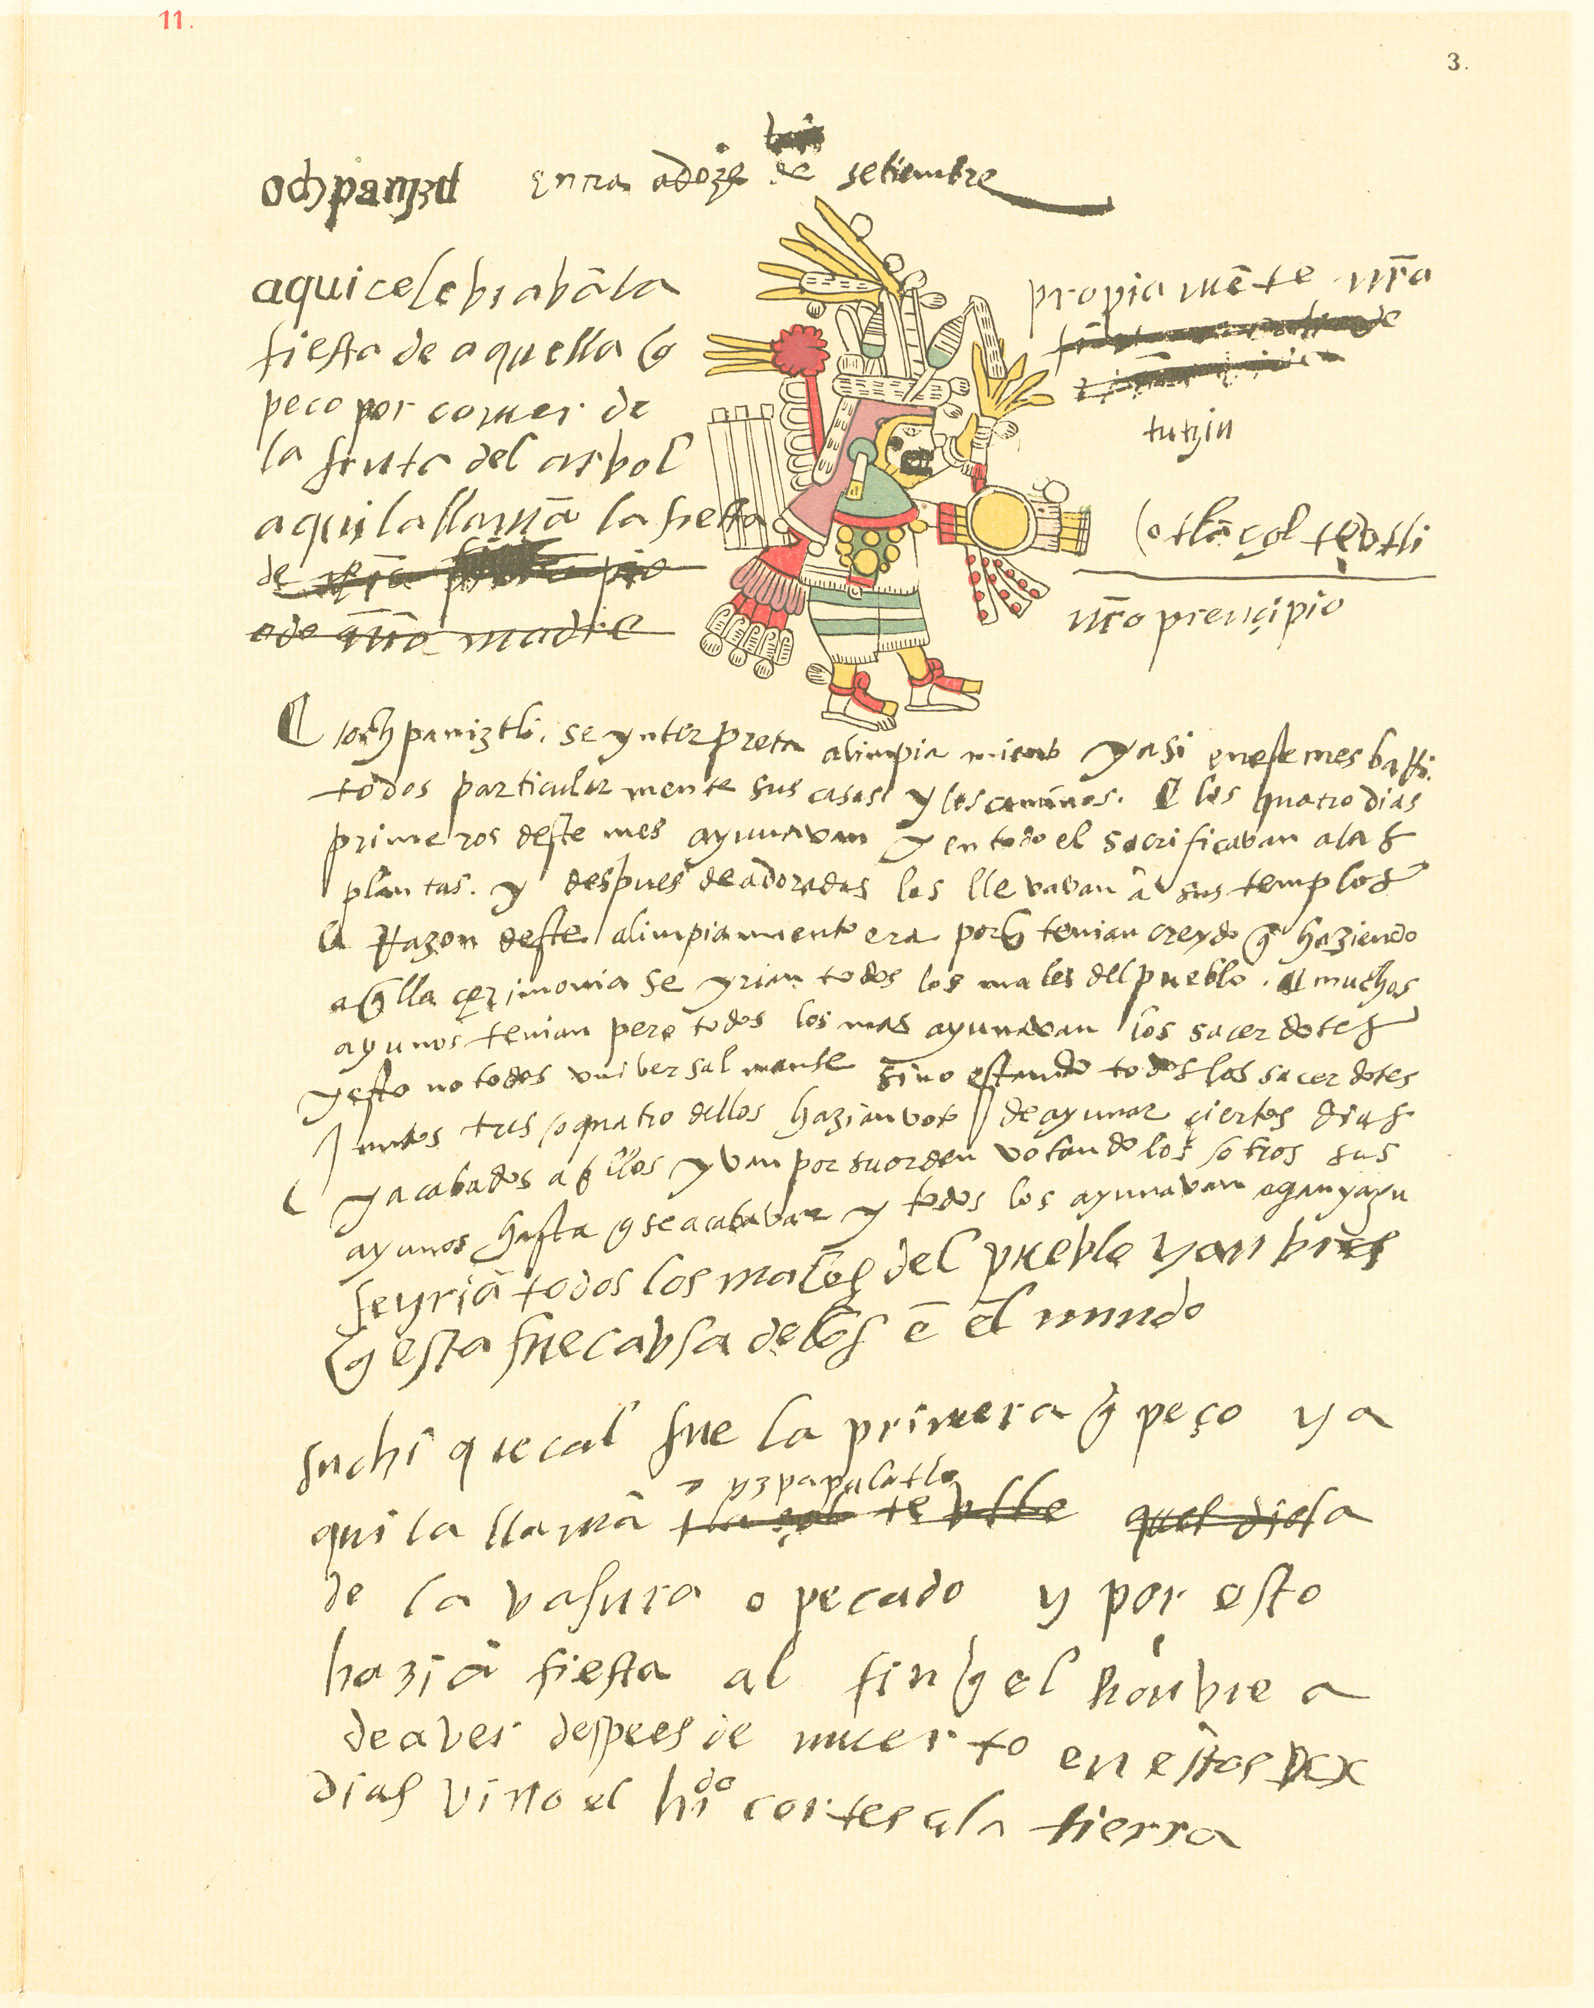 11.
3.
ochpaniztl entra adoze de setiembre
aqui celebrabā la
fiesta de aquella q̄
peco por comer de
la fruta del arbol
aqui la llamā la fiesta
de
o de
madre
propiamēte nr̄a
tutzin
o tlaçolteotli
nr̄o prençipio
ochpaniztli. se ynterpreta alimpiamiento y asi en este mes
todos particularmente sus casas y los caminos. los quatro dias
primeros deste mes ayunavan y en todo el sacrificavan a las
plantas. y despues de adoradas las llevavan â sus templos
la Razon deste alimpiamiento era porq̄ tenian creydo q̄ haziendo
aq̄lla çerimonia se yrian todos los males del pueblo. muchos
ayunos tenian pero todos los mas ayunavan los sacerdotes
y esto no todos vniversalmente sino estando todos los sacerdotes
juntos tres o quatro dellos hazian voto de ayunar çiertos dias
y acabados aq̄llos yvan por su orden votando los otros sus
ayunos hasta q̄ se acabavan y todos los ayunavan
se yriā todos los males del pueblo
q̄ esta fue cabsa dellos ē el mundo
suchiquecal fue la primera q̄ peço y a
yzpapalotle
qui la llamā tlaçolteutle quel diosa
de la vasura o pecado y por esto
haziā fiesta al fin q̄ el honbre a
de aver despues de muerto en estos xx
dias vino el hr̄do cortes a la tierra